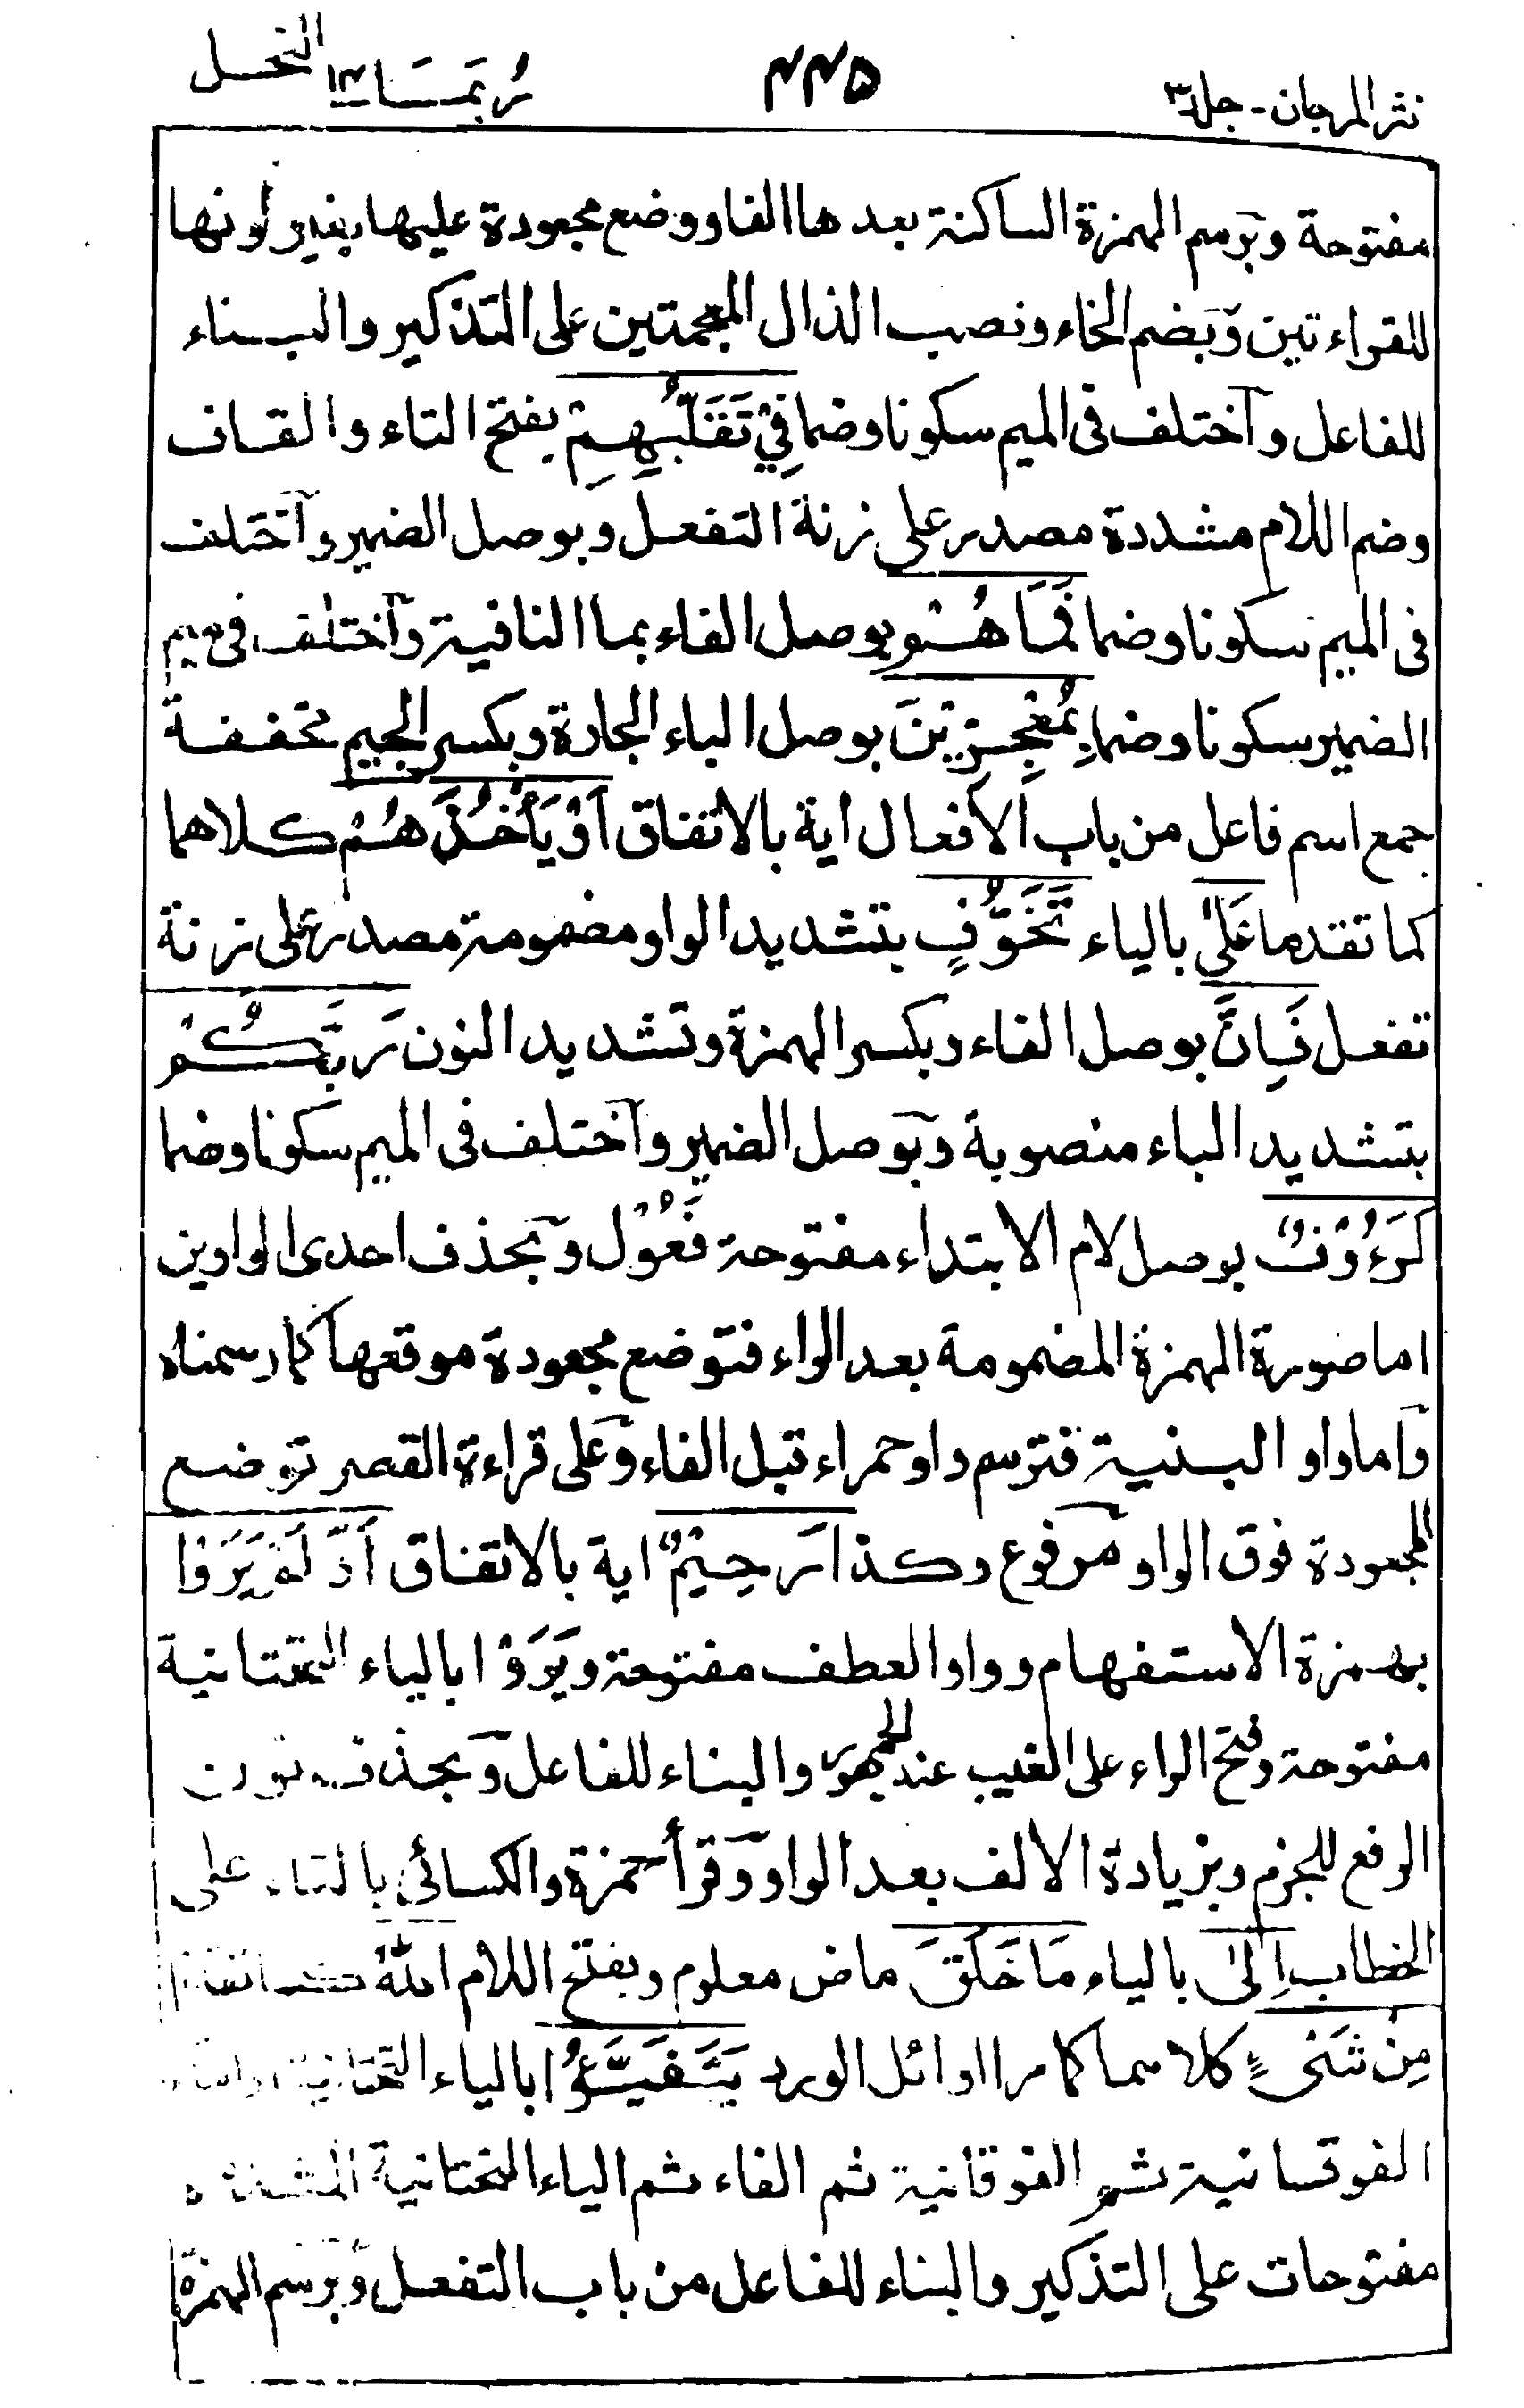 نثر المرجان - جلد ٣
٤٤٥
رُبَمَا ١٤ النحل
مفتوحة وبرسم الهمزة الساكنة بعدها الفا ووضع مجعودة عليها بغير لونها
للقراءتين وبضم الخاء ونصب الذال المعجمتين على التذكير والبناء
للفاعل واختلف فى الميم سكونا وضما فِيْ تَقَلُّبِهِمْ بفتح التاء والقاف
وضم اللام مشددة مصدر على زنة التفعل وبوصل الضمير واختلف
فى الميم سكونا وضما فَمَا هُمْ بوصل الفاء بما النافية واختلف فى ميم
الضمير سكونا وضما بِمُعْجِزِيْنَ بوصل الباء الجارة وبكسر الجيم مخففة
جمع اسم فاعل من باب الافعال اية بالاتفاق اَوْ يَأْخُذَهُمْ كلاهما
كما تقدما عَلٰى بالياء تَخَوُّفٍ بتشديد الواو مضمومة مصدر على زنة
تفعل فَاِنَّ بوصل الفاء وبكسر الهمزة وتشديد النون رَبَّكُمْ
بتشديد الباء منصوبة وبوصل الضمير واختلف فى الميم سكونا وضما
لَرَءُوْفٌ بوصل لام الابتداء مفتوحة فَعُوْل وبحذف احدى الواوين
اما صورة الهمزة المضمومة بعد الراء فتوضع مجعودة موقعها كما رسمناه
واما واو البنية فترسم واو حمراء قبل الفاء وعلى قراءة القصر توضع
المجعودة فوق الواو مرفوع وكذا رَحِيْمٌ اية بالاتفاق أَوَ لَمْ يَرَوْا
بهمزة الاستفهام وواو العطف مفتوحة ويَرَوْا بالياء التحتانية
مفتوحة وفتح الراء على الغيب عند الجمهور والبناء للفاعل وبحذف نون
الرفع للجزم وبزيادة الالف بعد الواو وقرأ حمزة والكسائي بالتاء على
الخطاب اِلٰى بالياء مَا خَلَقَ ماض معلوم وبفتح اللام اللهُ
مِنْ شَىْءٍ كلاهما كما مرا اوائل الورد يَتَفَيَّؤُا بالياء التحتانية
الفوقانية ثم الفوقانية ثم الفاء ثم الياء التحتانية المشددة
مفتوحات على التذكير والبناء للفاعل من باب التفعل وبرسم الهمزة